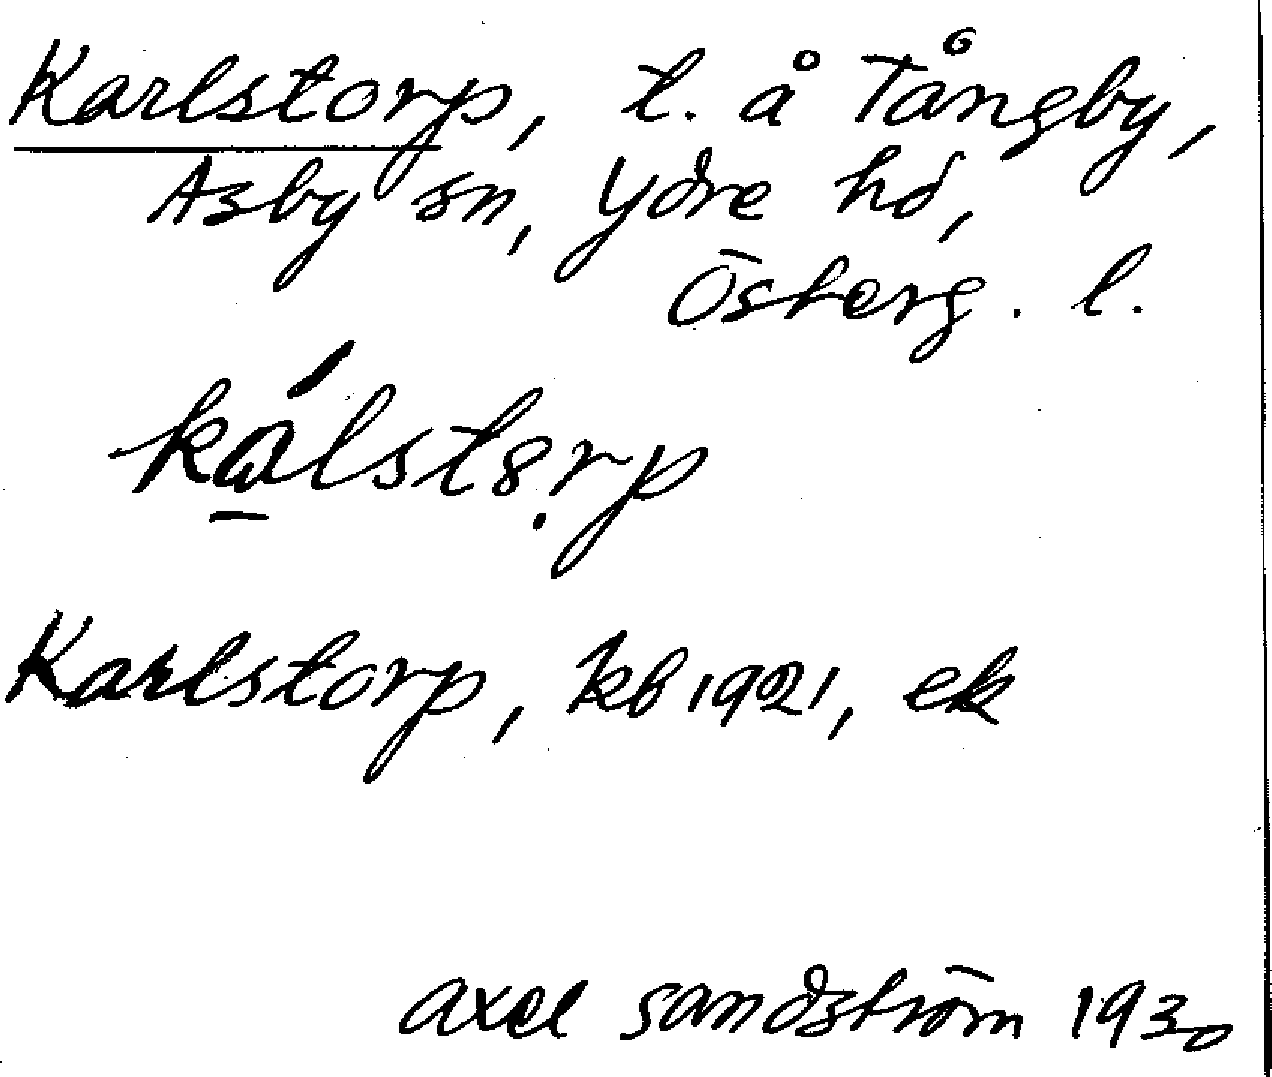 Karlstorp, t. å Tångby,
Asby sn, Ydre hd,
Österg. l.
kálstȣ̣rp
Karlstorp, kb 1921, ek
Axel Sandström 1930